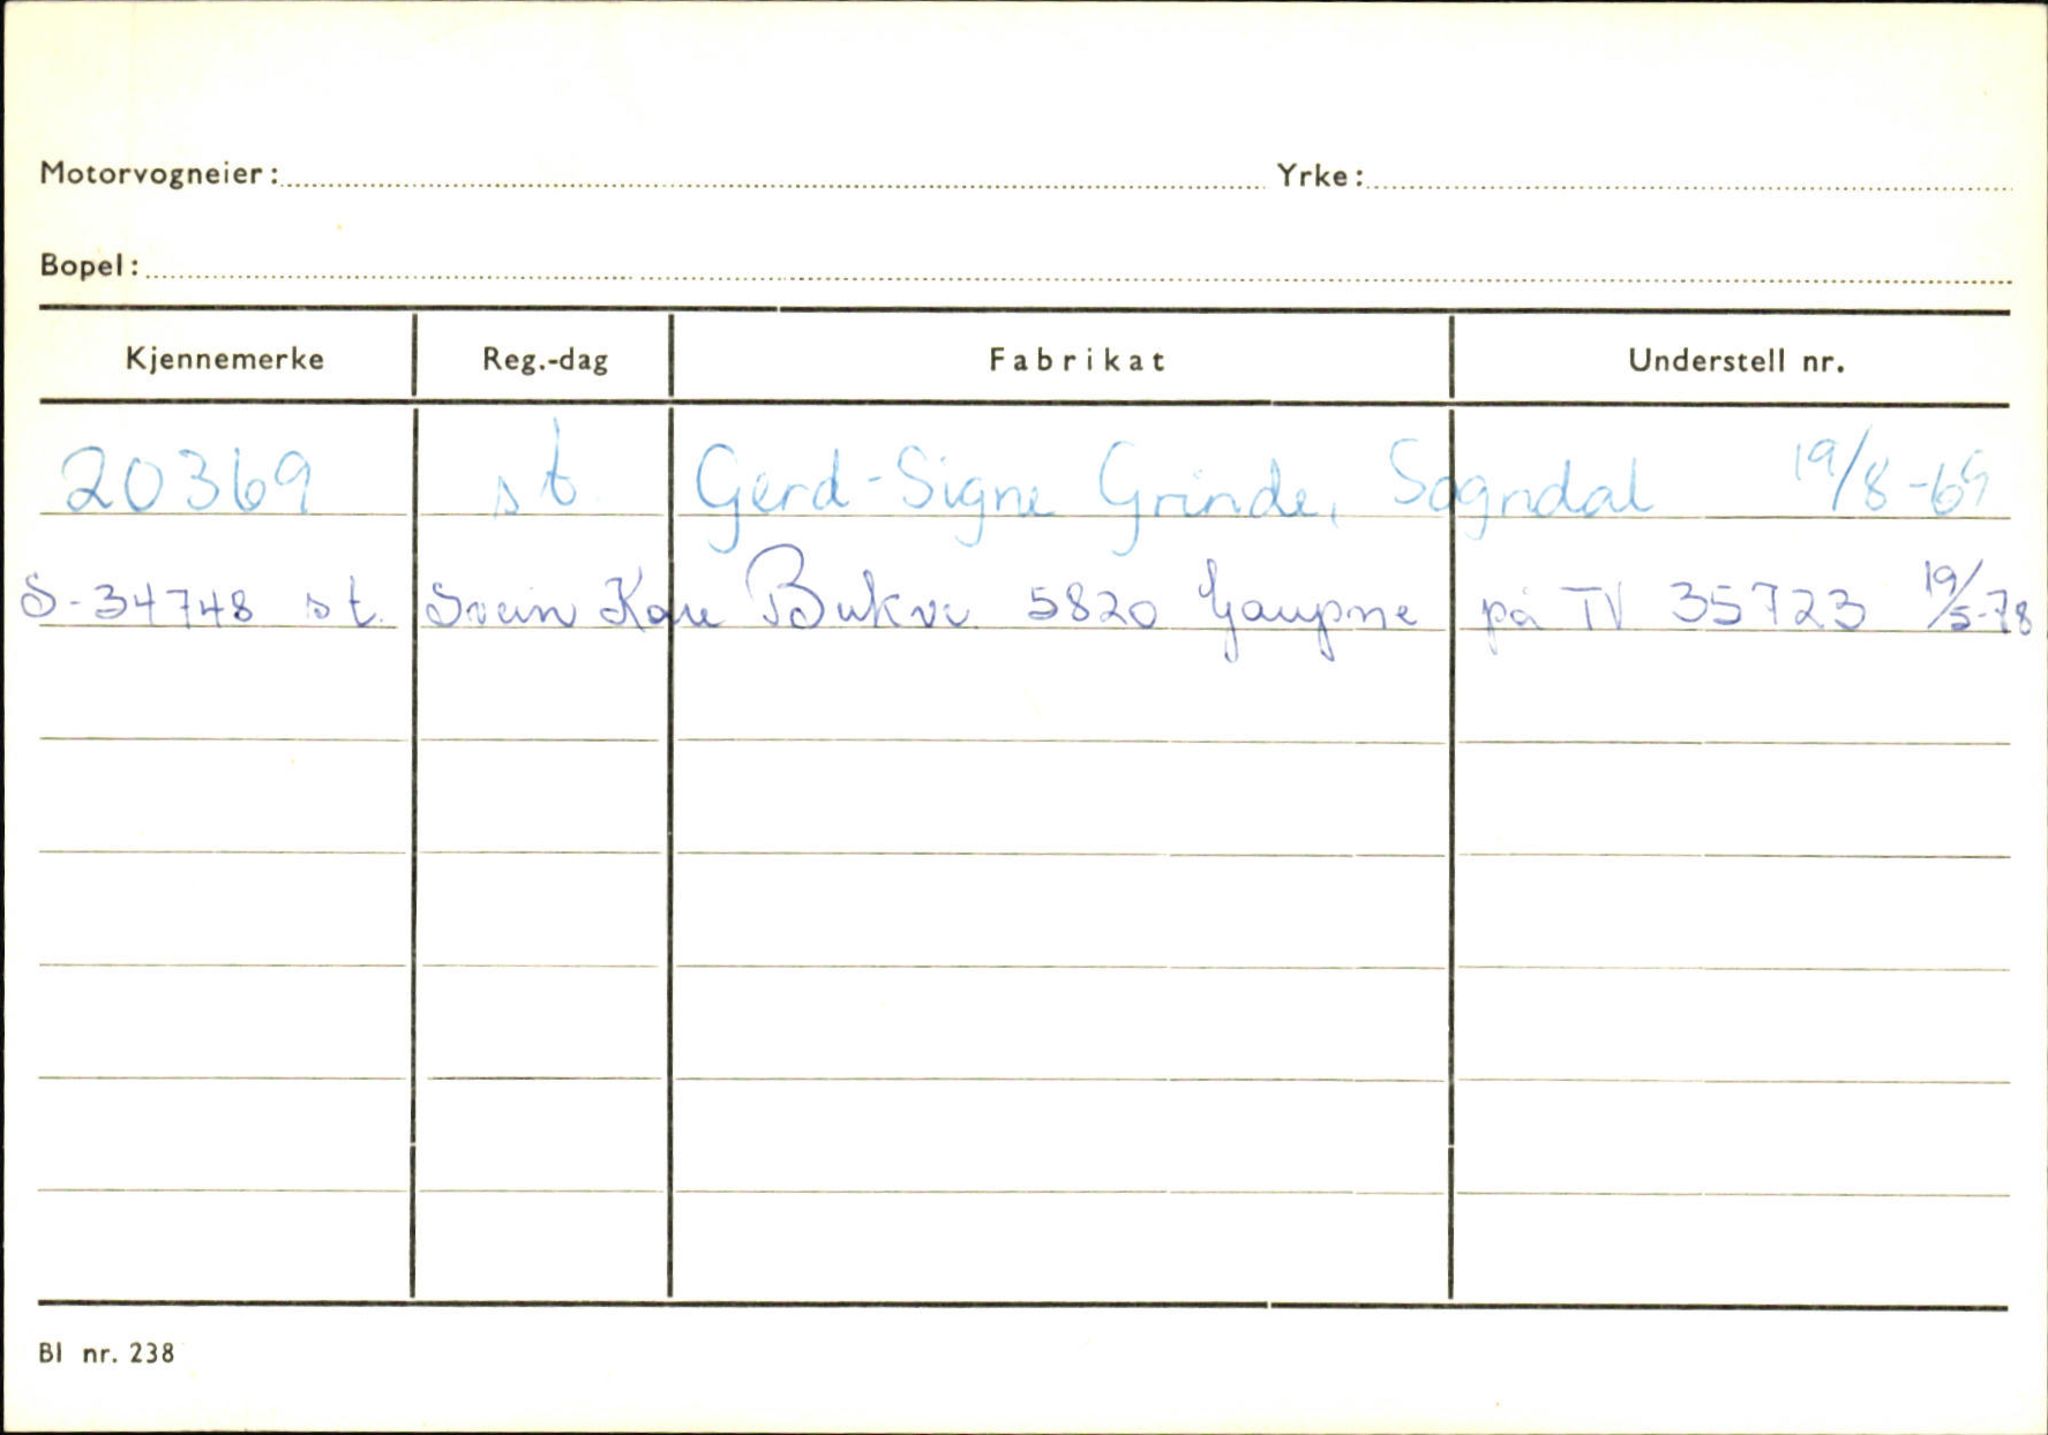 Motorvogneier: Yrke:
Bopel:
Kjennemerke Reg.-dag Fabrikat Understell nr.
20369 st. Gerd-Signe Grinde, Sogndal 19/8-69
S-34748 st. Svein Kåre Bukve 5820 Gaupne på TV 35723 19/5-78
Bl nr. 238